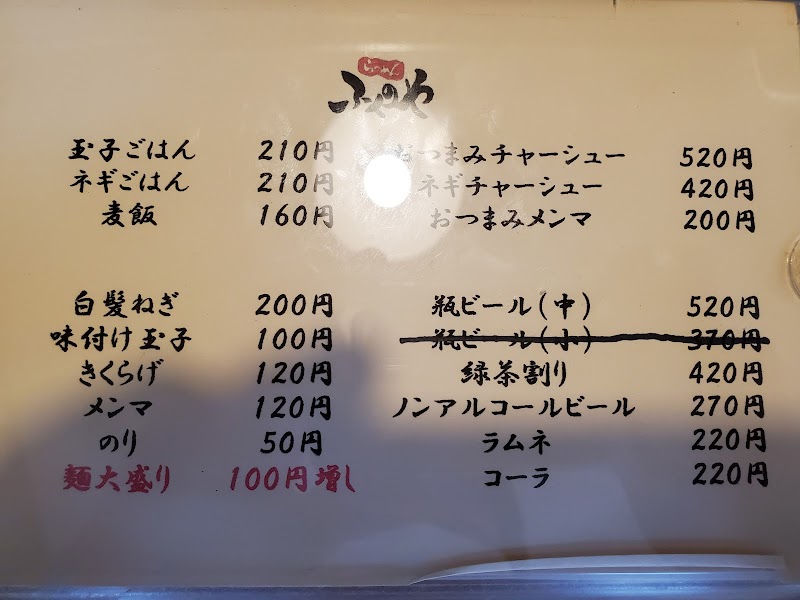 らーめん
ふくのや
玉子ごはん 210円
ネギごはん 210円
麦飯 160円
おつまみチャーシュー 520円
ネギチャーシュー 420円
おつまみメンマ 200円
白髪ねぎ 200円
味付け玉子 100円
きくらげ 120円
メンマ 120円
のり 50円
麺大盛り 100円増し
瓶ビール(中) 520円
瓶ビール(小) 370円
緑茶割り 420円
ノンアルコールビール 270円
ラムネ 220円
コーラ 220円